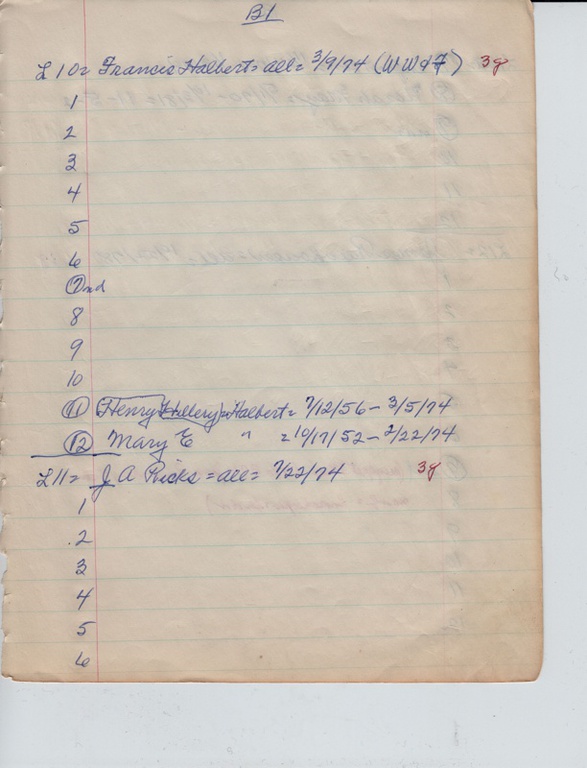 B1
L10= Francis Halbert= all= 3/9/74 (WWd7) 3g
1
2
3
4
5
6
7 nd
8
9
10
11 Henry Hillery= Halbert= 7/12/56 - 3/5/74
12 Mary E " = 10/17/52 - 2/22/74
L11= J A Ricks = all= 7/22/74 3g
1
.2
3
4
5
6